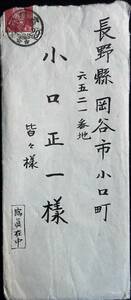 長野縣岡谷市小口町
六五二一番地
小口正一様
皆々様
寫眞在中